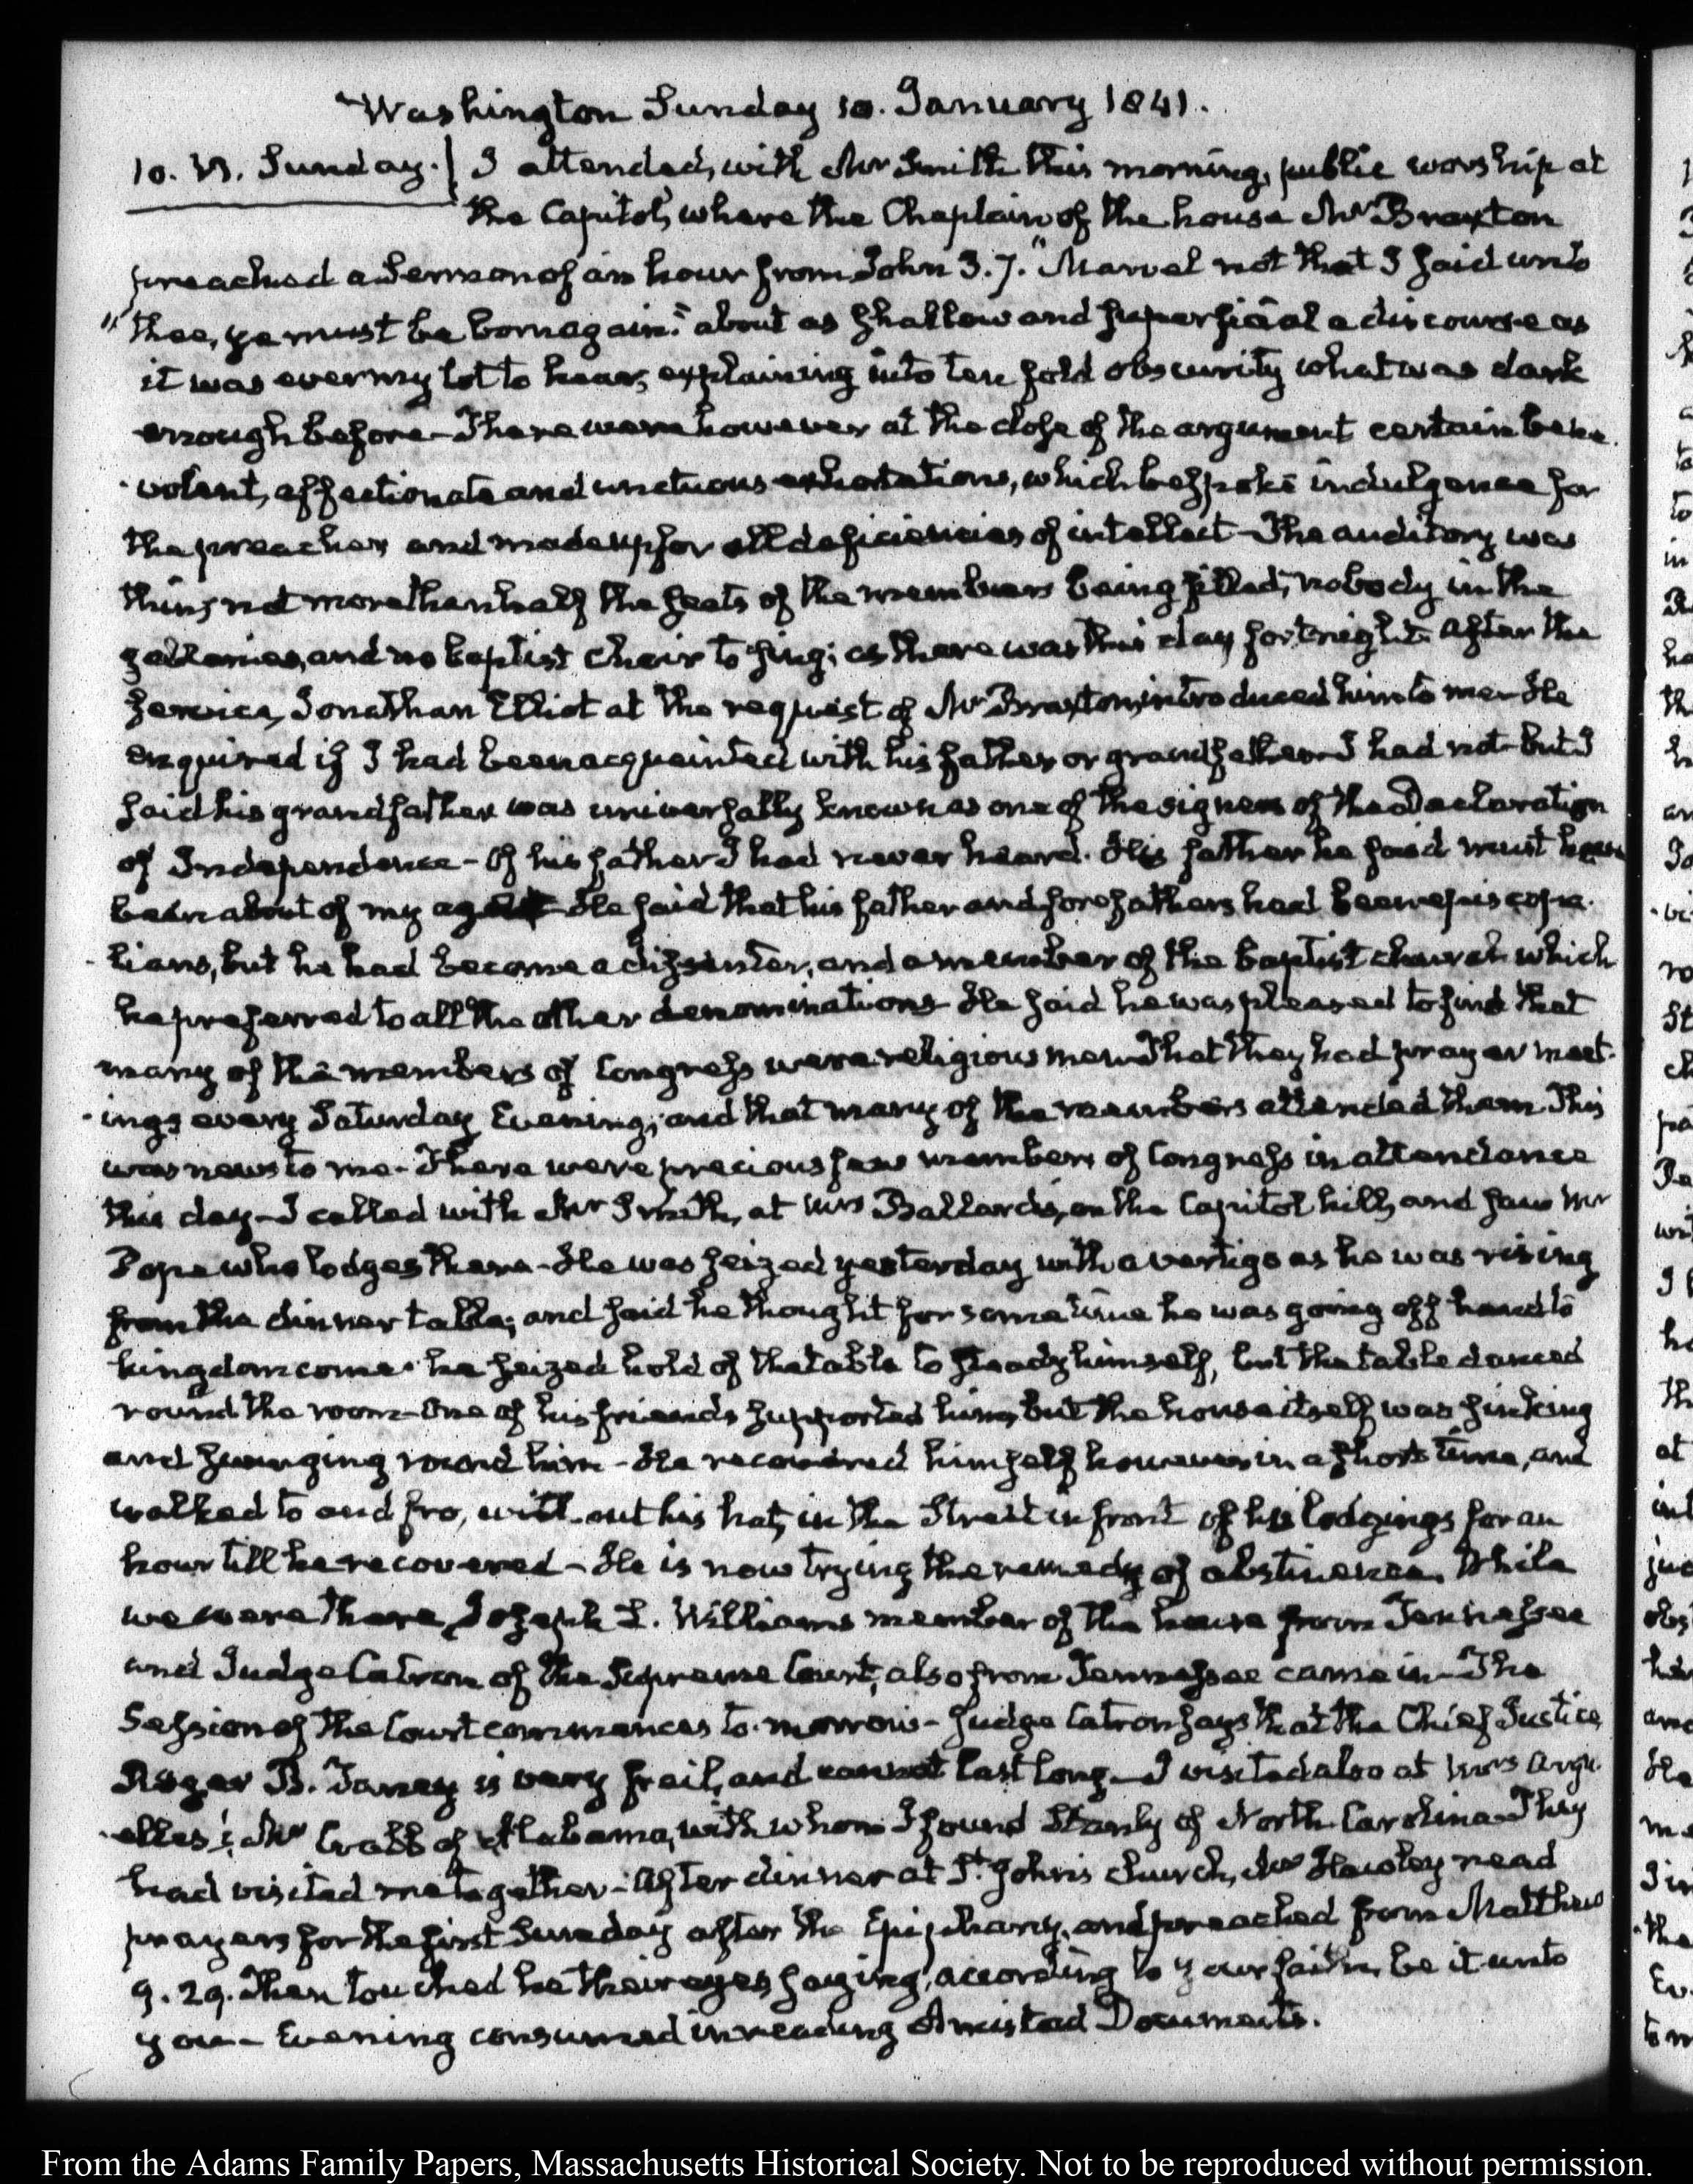 Washington Sunday 10. January 1841.
10. VI. Sunday. I attended, with Mr Smith this morning, public worship at
the Capitol, where the Chaplain of the house Mr Braxton
preached a Sermon of an hour from John 3.7. "Marvel not that I said unto
"thee, ye must be born again." about as shallow and superficial a discourse as
it was ever my lot to hear, explaining into ten fold obscurity what was dark
enough before – There were however at the close of the argument certain bene-
-volent, affectionate and unctuous exhortations, which bespoke indulgence for
the preacher, and made up for all deficiencies of intellect – The auditory was
thin, not more than half the seats of the members being filled, nobody in the
galleries, and no baptist choir to sing; as there was this day fortnight. After the
service, Jonathan Elliot at the request of Mr Braxton, introduced him to me – He
enquired if I had been acquainted with his father or grandfather – I had not – but I
said his grandfather was universally known as one of the signers of the Declaration
of Independence – Of his father I had never heard. His father he said must have
been about of my age – He said that his father and forefathers had been episcopa-
-lians, but he had become a dissenter, and a member of the baptist church which
he preferred to all the other denominations – He said he was pleased to find that
many of the members of Congress were religious men – That they had prayer meet-
-ings every Saturday Evening; and that many of the members attended them. This
was news to me – There were precious few members of Congress in attendance
this day – I called with Mr Smith, at Mrs Ballard's, on the Capitol hill, and saw Mr
Pope who lodges there – He was seized yesterday with a vertigo as he was rising
from the dinner table; and said he thought for some time he was going off hand to
kingdom come. he seized hold of the table to steady himself, but the table danced
round the room – One of his friends supported him, but the house itself was sinking
and swinging round him – He recovered himself however in a short time, and
walked to and fro, without his hat, in the Street in front of his lodgings for an
hour till he recovered – He is now trying the remedy of abstinence. While
we were there, Joseph L. Williams member of the house from Tennessee
and Judge Catron of the Supreme Court, also from Tennessee came in – The
Session of the Court commences to-morrow – Judge Catron says that the Chief Justice
Roger B. Taney is very frail, and cannot last long – I visited also at Mrs Argu-
-elles's, Mr Crabb of Alabama, with whom I found Stanly of North Carolina – They
had visited me together – After dinner at St. John's church, Mr Hawley read
prayers for the first Sunday after the Epiphany, and preached from Matthew
9. 29. Then touched he their eyes saying, according to your faith, be it unto
you – Evening consumed in reading Amistad Documents.
From the Adams Family Papers, Massachusetts Historical Society. Not to be reproduced without permission.